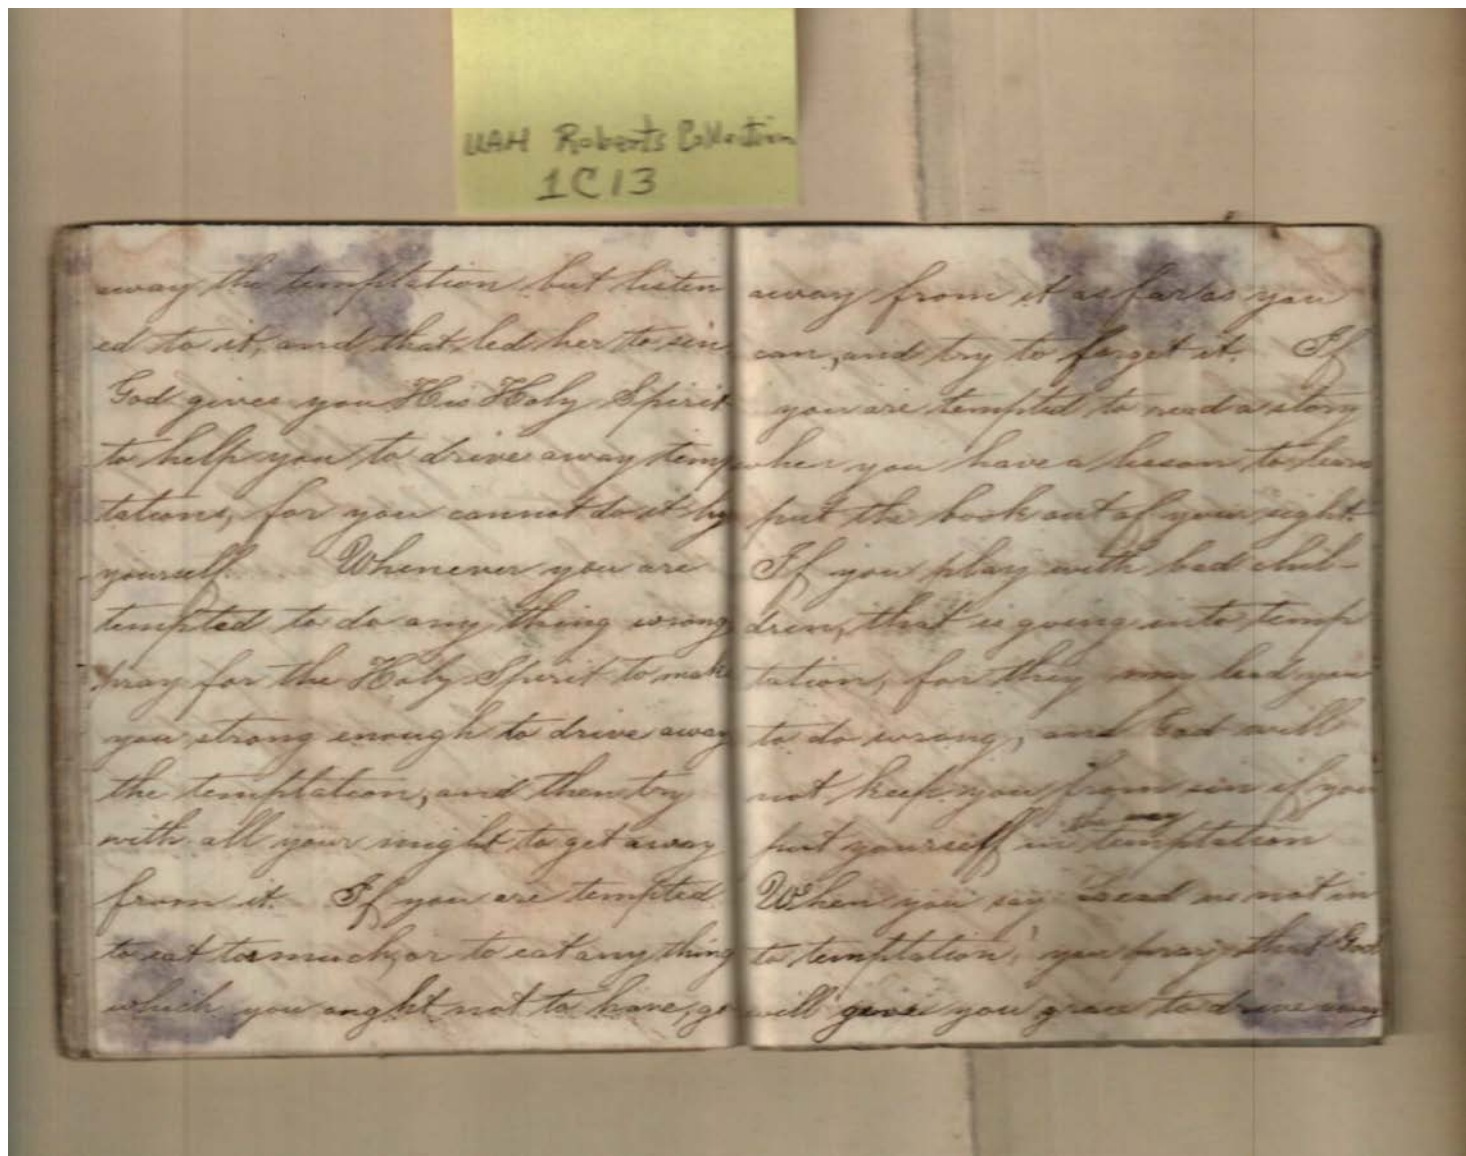 UAH Roberts Collection
1C13
away the temptation but listen
ed to it, and that led her to sin
God gives you His Holy Spirit
to help you to drive away temp
tations, for you cannot do it by
yourself. Whenever you are
tempted to do any thing wrong
pray for the Holy Spirit to make
you strong enough to drive away
the temptation, and then try
with all your might to get away
from it. If you are tempted
to eat too much, or to eat any thing
which you ought not to have, go
away from it as far as you
can, and try to forget it. If
you are tempted to read a story
when you have a lesson to learn
put the book out of your sight.
If you play with bad chil-
dren, that is going into temp
tation, for they may lead you
to do wrong, and God will
not keep you from sin if you
the way
put yourself in temptation
When you say Lead us not in
to temptation,' you pray that God
will give you grace to drive away